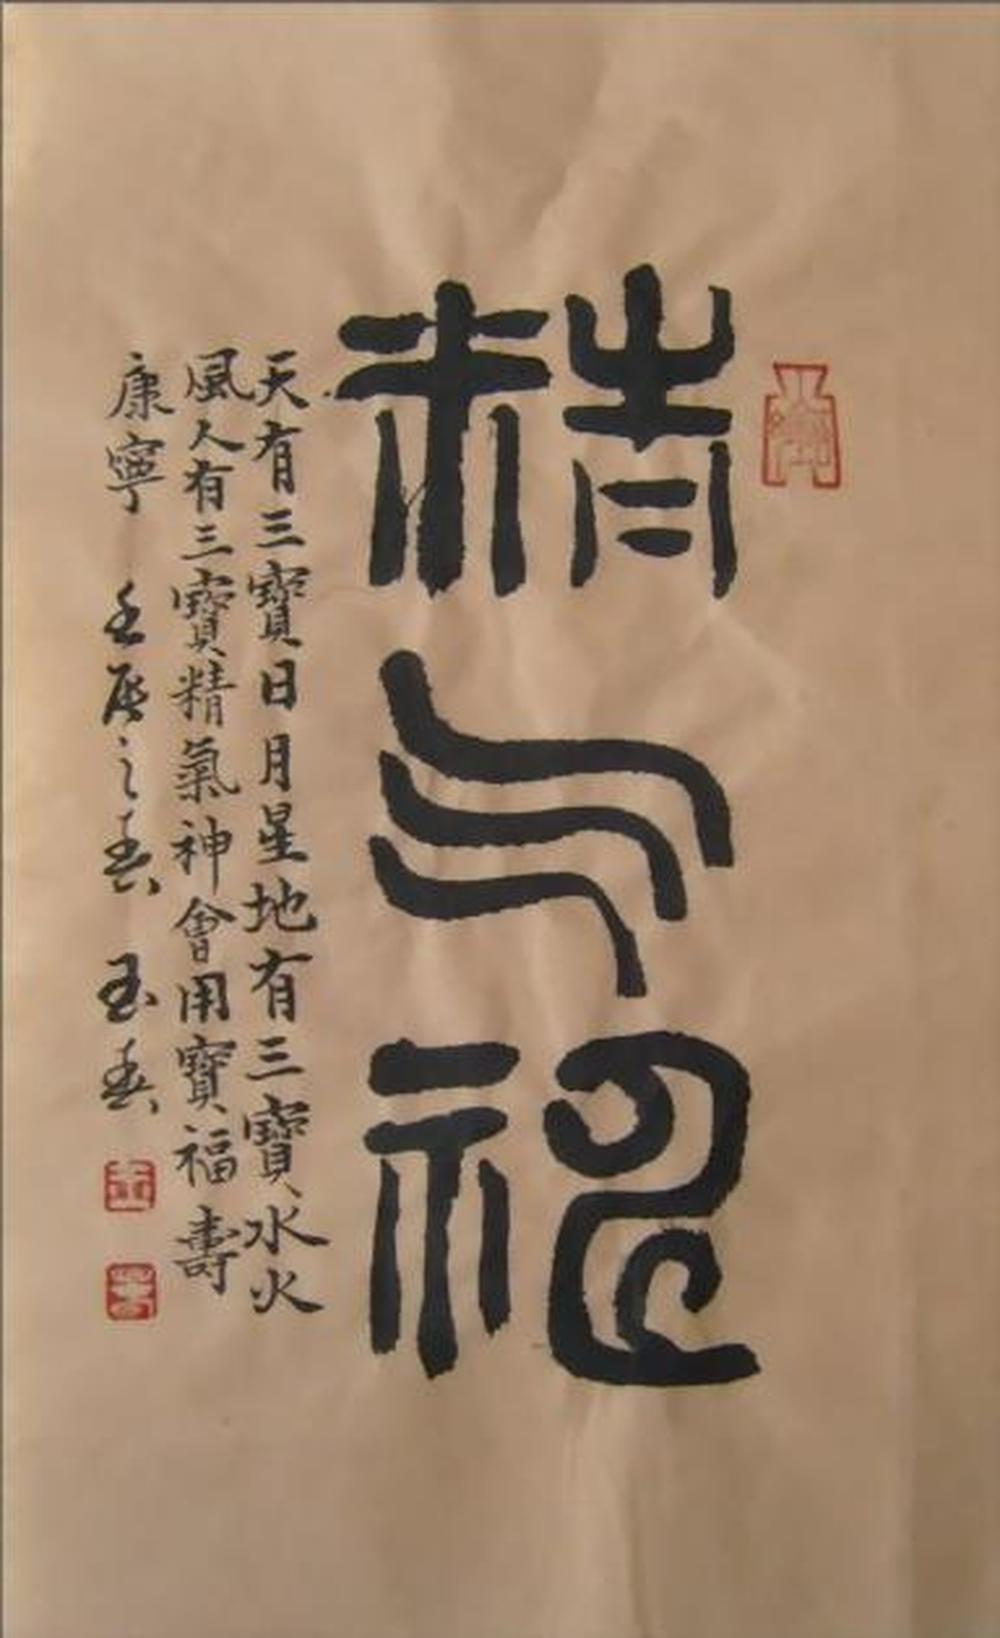 精气神
天有三寶日月星地有三寶水火
風人有三寶精氣神會用寶福壽
康寧 壬辰之春 玉春